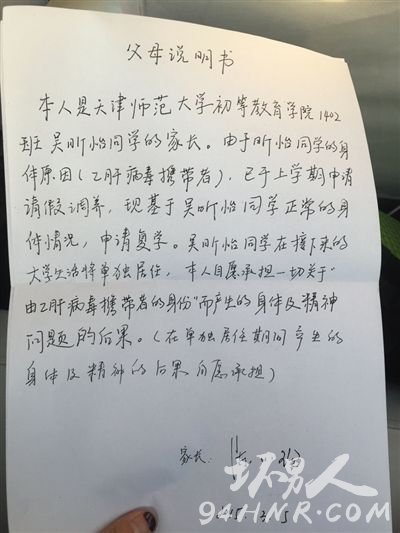 父母说明书
本人是天津师范大学初等教育学院1402
班吴昕怡同学的家长。由于昕怡同学的身
体原因（乙肝病毒携带者），已于上学期申请
请假调养，现基于吴昕怡同学正常的身
体情况，申请复学。吴昕怡同学在接下来的
大学生活将单独居住，本人自愿承担一切关于“
由乙肝病毒携带者的身份”而产生的身体及精神
问题的后果。（在单独居住期间产生的
身体及精神的后果自愿承担）
家长：
坏男人
94HNR.COM